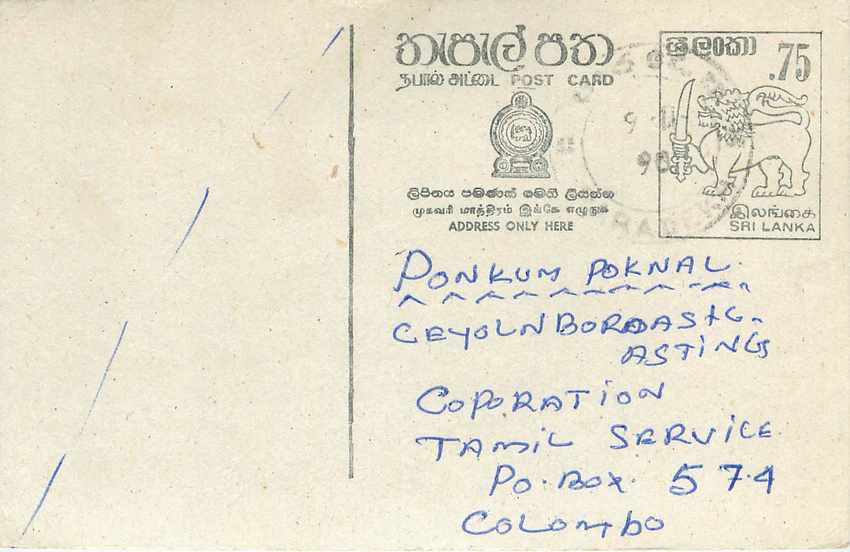 තැපැල් පත
தபால் அட்டை POST CARD
ලිපිනය පමණක් මෙහි ලියන්න
முகவரி மாத்திரம் இங்கே எழுதுக
ADDRESS ONLY HERE
ශ්‍රී ලංකා
.75
இலங்கை
SRI LANKA
90
PONKUM POKNAL
CEYOLN BOROASTG-
ASTINGS
COPORATION
TAMIL SERVICE
PO.BOX. 574
COLOMBO